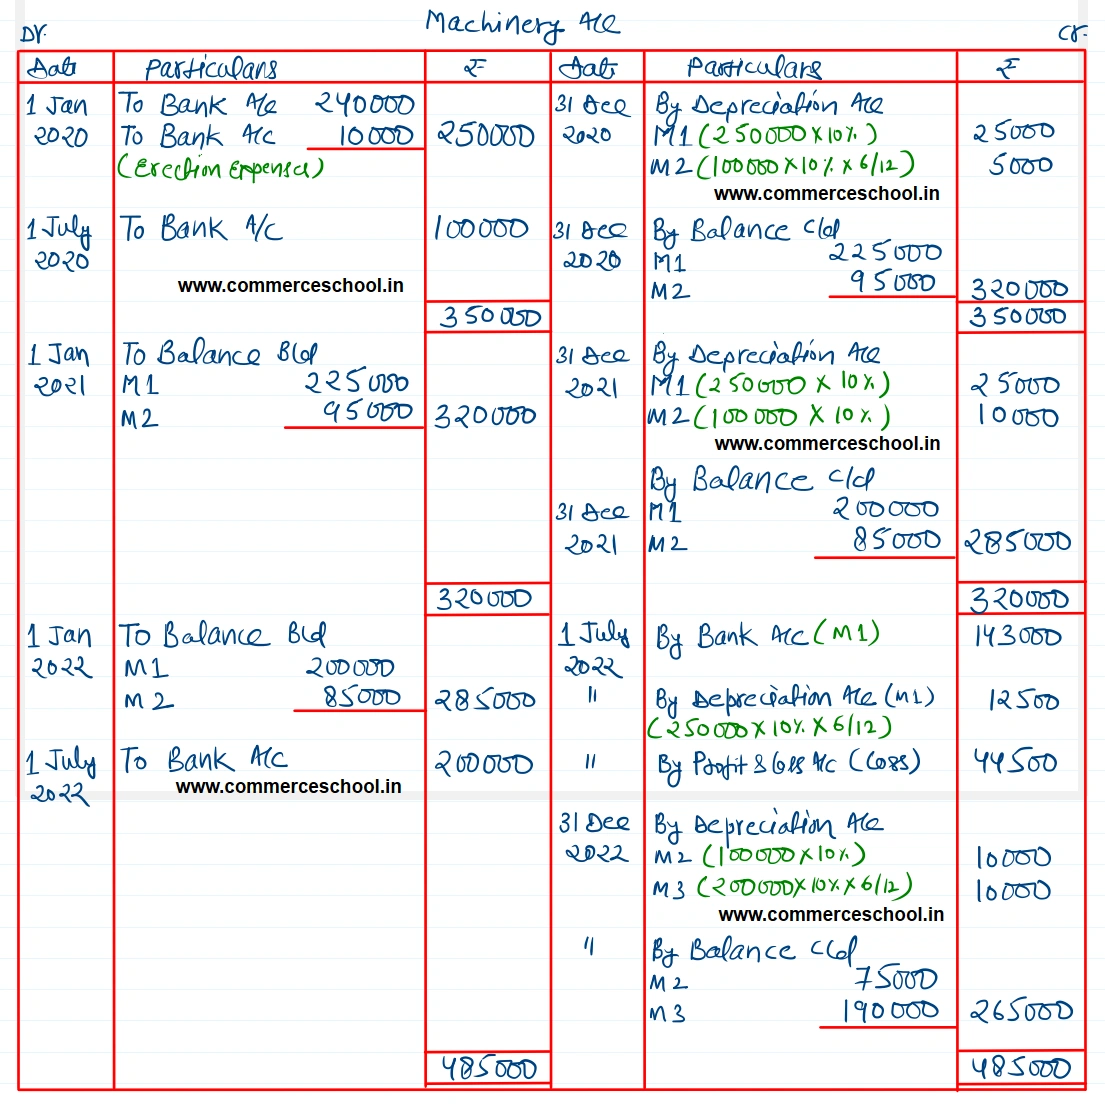 Machinery A/c
Dr. Cr.
Date Particulars ₹ Date Particulars ₹
1 Jan To Bank A/c 240000 31 Dec By Depreciation A/c
2020 To Bank A/c 10000 250000 2020 M1 (250000 X 10%) 25000
(Erection Expenses) M2 (100000 X 10% X 6/12) 5000
www.commerceschool.in
1 July To Bank A/c 100000 31 Dec By Balance C/d
2020 2020 M1 225000
www.commerceschool.in M2 95000 320000
350000 350000
1 Jan To Balance B/d 31 Dec By Depreciation A/c
2021 M1 225000 2021 M1 (250000 X 10%) 25000
M2 95000 320000 M2 (100000 X 10%) 10000
www.commerceschool.in
By Balance C/d
31 Dec M1 200000
2021 M2 85000 285000
320000 320000
1 Jan To Balance B/d 1 July By Bank A/c (M1) 143000
2022 M1 200000 2022
M2 85000 285000 " By Depreciation A/c (M1) 12500
(250000 X 10% X 6/12)
1 July To Bank A/c 200000 " By Profit & Loss A/c (Loss) 44500
2022 www.commerceschool.in
31 Dec By Depreciation A/c
2022 M2 (100000 X 10%) 10000
M3 (200000 X 10% X 6/12) 10000
www.commerceschool.in
" By Balance C/d
M2 75000
M3 190000 265000
485000 485000